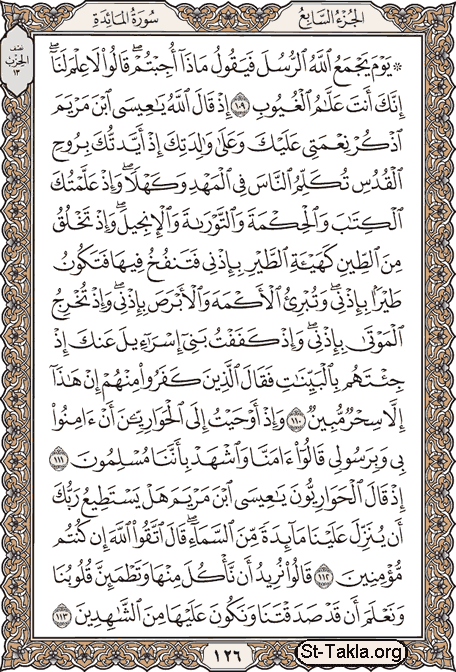 الجزء السابع
سورة المائدة
نصف
الحزب
١٣
۞ يَوْمَ يَجْمَعُ ٱللَّهُ ٱلرُّسُلَ فَيَقُولُ مَاذَآ أُجِبْتُمْ ۖ قَالُوا۟ لَا عِلْمَ لَنَآ ۖ
إِنَّكَ أَنتَ عَلَّـٰمُ ٱلْغُيُوبِ ١٠٩ إِذْ قَالَ ٱللَّهُ يَـٰعِيسَى ٱبْنَ مَرْيَمَ
ٱذْكُرْ نِعْمَتِى عَلَيْكَ وَعَلَىٰ وَٰلِدَتِكَ إِذْ أَيَّدتُّكَ بِرُوحِ
ٱلْقُدُسِ تُكَلِّمُ ٱلنَّاسَ فِى ٱلْمَهْدِ وَكَهْلًا ۖ وَإِذْ عَلَّمْتُكَ
ٱلْكِتَـٰبَ وَٱلْحِكْمَةَ وَٱلتَّوْرَىٰةَ وَٱلْإِنجِيلَ ۖ وَإِذْ تَخْلُقُ
مِنَ ٱلطِّينِ كَهَيْـَٔةِ ٱلطَّيْرِ بِإِذْنِى فَتَنفُخُ فِيهَا فَتَكُونُ
طَيْرًۢا بِإِذْنِى ۖ وَتُبْرِئُ ٱلْأَكْمَهَ وَٱلْأَبْرَصَ بِإِذْنِى ۖ وَإِذْ تُخْرِجُ
ٱلْمَوْتَىٰ بِإِذْنِى ۖ وَإِذْ كَفَفْتُ بَنِىٓ إِسْرَٰٓءِيلَ عَنكَ إِذْ
جِئْتَهُم بِٱلْبَيِّنَـٰتِ فَقَالَ ٱلَّذِينَ كَفَرُوا۟ مِنْهُمْ إِنْ هَـٰذَآ
إِلَّا سِحْرٌ مُّبِينٌ ١١٠ وَإِذْ أَوْحَيْتُ إِلَى ٱلْحَوَارِيِّـۧنَ أَنْ ءَامِنُوا۟
بِى وَبِرَسُولِى قَالُوٓا۟ ءَامَنَّا وَٱشْهَدْ بِأَنَّنَا مُسْلِمُونَ ١١١
إِذْ قَالَ ٱلْحَوَارِيُّونَ يَـٰعِيسَى ٱبْنَ مَرْيَمَ هَلْ يَسْتَطِيعُ رَبُّكَ
أَن يُنَزِّلَ عَلَيْنَا مَآئِدَةً مِّنَ ٱلسَّمَآءِ ۖ قَالَ ٱتَّقُوا۟ ٱللَّهَ إِن كُنتُم
مُّؤْمِنِينَ ١١٢ قَالُوا۟ نُرِيدُ أَن نَّأْكُلَ مِنْهَا وَتَطْمَئِنَّ قُلُوبُنَا
وَنَعْلَمَ أَن قَدْ صَدَقْتَنَا وَنَكُونَ عَلَيْهَا مِنَ ٱلشَّـٰهِدِينَ ١١٣
١٢٦
St-Takla.org